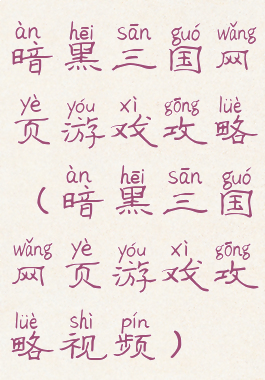 àn hēi sān guó wǎng
暗黑三国网
yè yóu xì gōng lüè
页游戏攻略
àn hēi sān guó
（暗黑三国
wǎng yè yóu xì gōng
网页游戏攻
lüè shì pín
略视频）